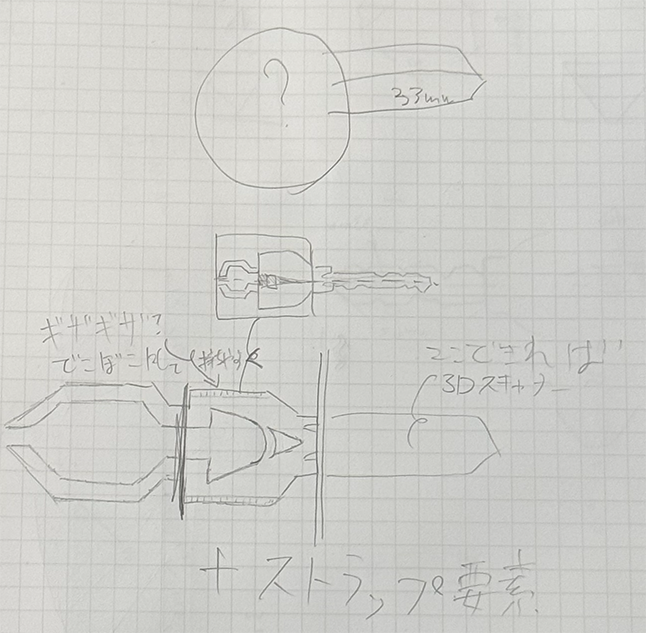 ?
33mm
ギザギザ?
でこぼこ?
ここできれば
3Dスキャナー
+ストラップ要素